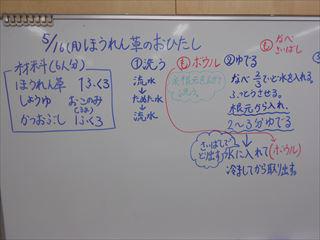 5/16(月)ほうれん草のおひたし
材料(6人分)
ほうれん草 1ふくろ
しょうゆ お・このみ
かつおぶし 1ふくろ
①洗う
流水
↓
ため水
↓
流水
も ボウル
②ゆでる
なべ2/3ほど水を入れる。
ふっとうさせる。
根元から入れ、
2〜3分ゆでる
も なべ
さいばし
さいばしで
とり出す
水に入れて(ボウル)
冷ましてから取り出す。